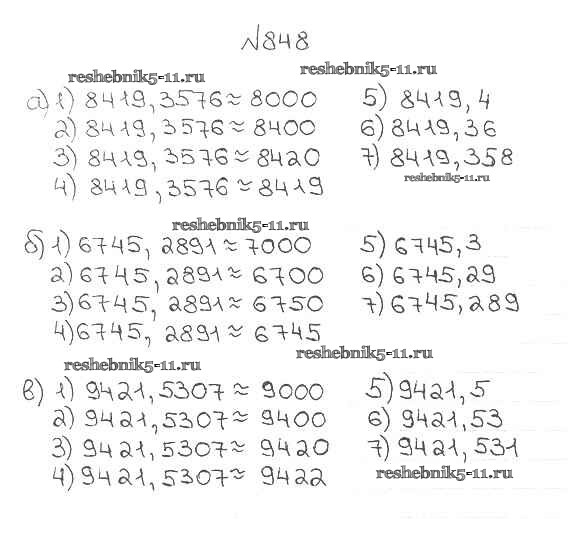 №848
reshebnik5-11.ru reshebnik5-11.ru
а) 1) 8419,3576 ≈ 8000 5) 8419,4
2) 8419,3576 ≈ 8400 6) 8419,36
3) 8419,3576 ≈ 8420 7) 8419,358
4) 8419,3576 ≈ 8419 reshebnik5-11.ru
reshebnik5-11.ru
б) 1) 6745,2891 ≈ 7000 5) 6745,3
2) 6745,2891 ≈ 6700 6) 6745,29
3) 6745,2891 ≈ 6750 7) 6745,289
4) 6745,2891 ≈ 6745
reshebnik5-11.ru reshebnik5-11.ru
в) 1) 9421,5307 ≈ 9000 5) 9421,5
2) 9421,5307 ≈ 9400 6) 9421,53
3) 9421,5307 ≈ 9420 7) 9421,531
4) 9421,5307 ≈ 9422 reshebnik5-11.ru